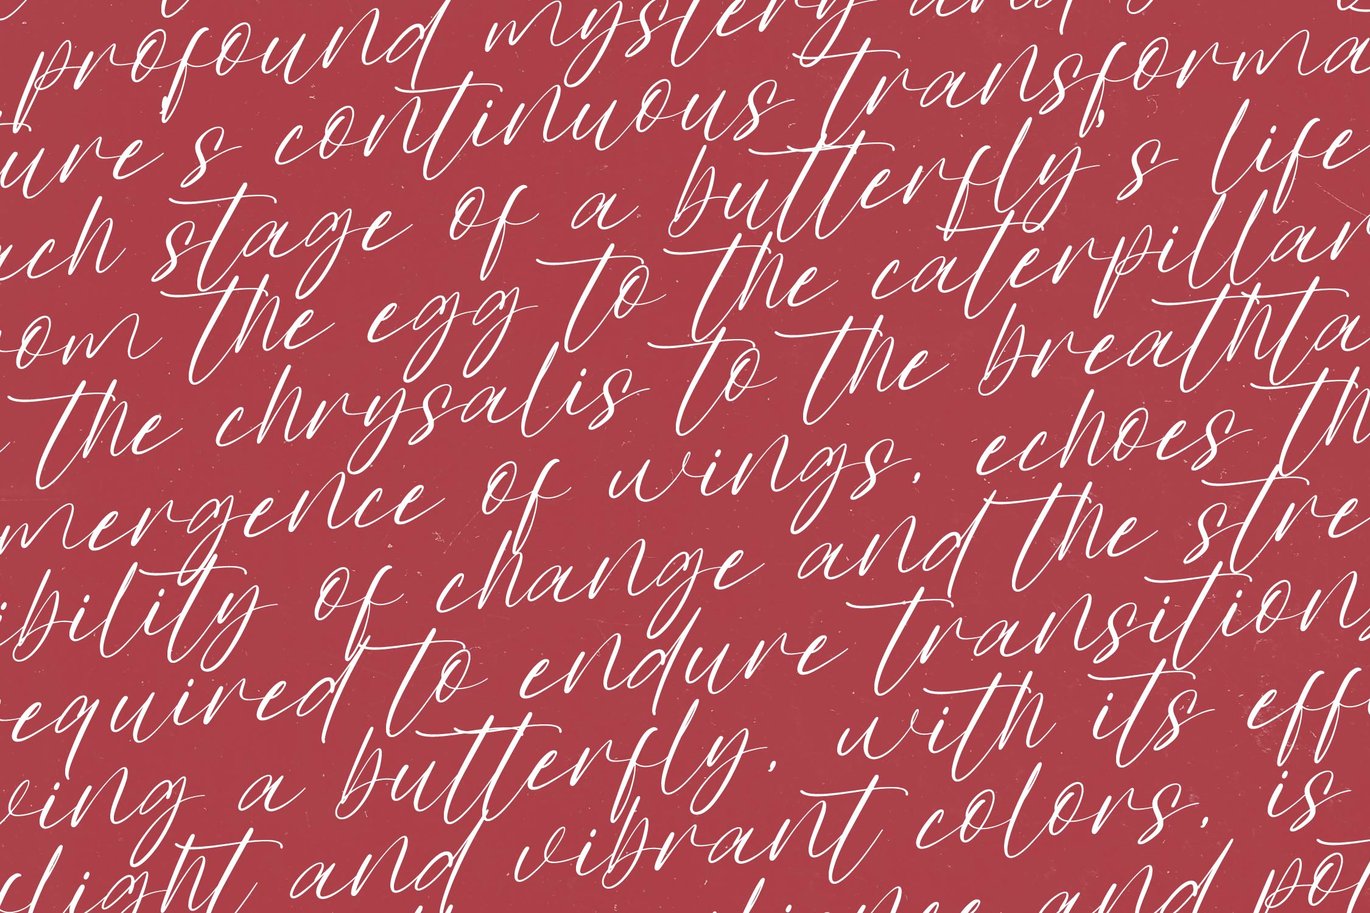 profound mystery and
ure's continuous transforma
ach stage of a butterfly's life
rom the egg to the caterpillar
the chrysalis to the breathta
mergence of wings, echoes th
ibility of change and the stre
equired to endure transitions
ving a butterfly, with its eff
flight and vibrant colors, is
and pot